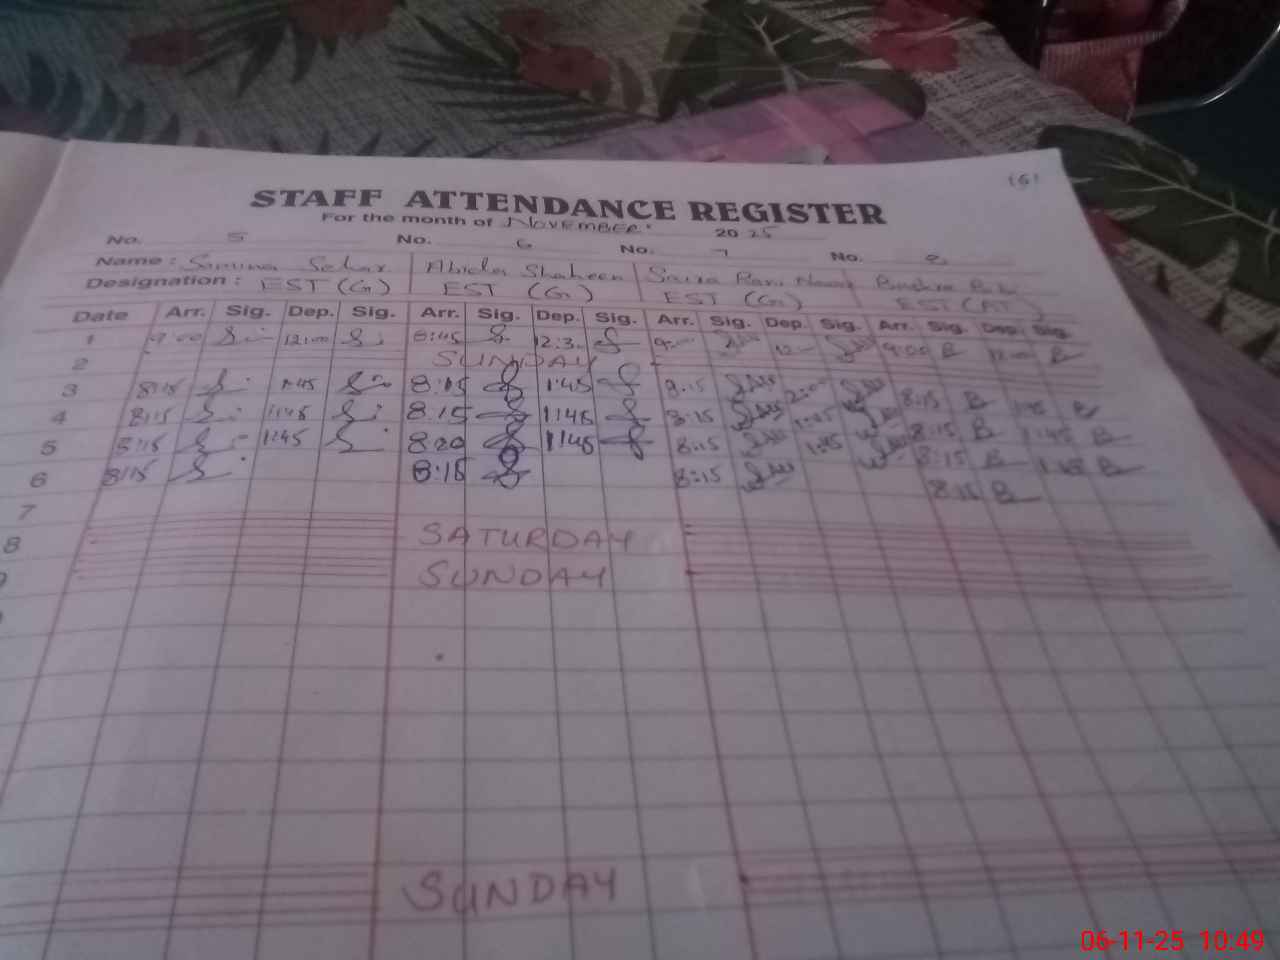 161
STAFF ATTENDANCE REGISTER
For the month of NOVEMBER. 2025
No. 5 No. 6 No. 7 No. 8
Name : Samina Sehar Abida Shaheen Saira Bushra
Designation : EST (G) EST (G) EST (G) EST (AT)
Date Arr. Sig. Dep. Sig. Arr. Sig. Dep. Sig. Arr. Sig. Dep. Sig. Arr. Sig. Dep. Sig.
1 9:00 12:00 8:45 12:30 9:00 12 9:00 B 12:00 B
2 SUNDAY
3 8:15 1:45 8:15 1:45 8:15 2:00 8:15 B 1:45 B
4 8:15 1:45 8:15 1:45 8:15 1:45 8:15 B 1:45 B
5 8:15 1:45 8:20 1:45 8:15 1:45 8:15 B 1:45 B
6 8:15 8:15 8:15 8:15 B
7
8 SATURDAY
SUNDAY
SUNDAY
06-11-25 10:49